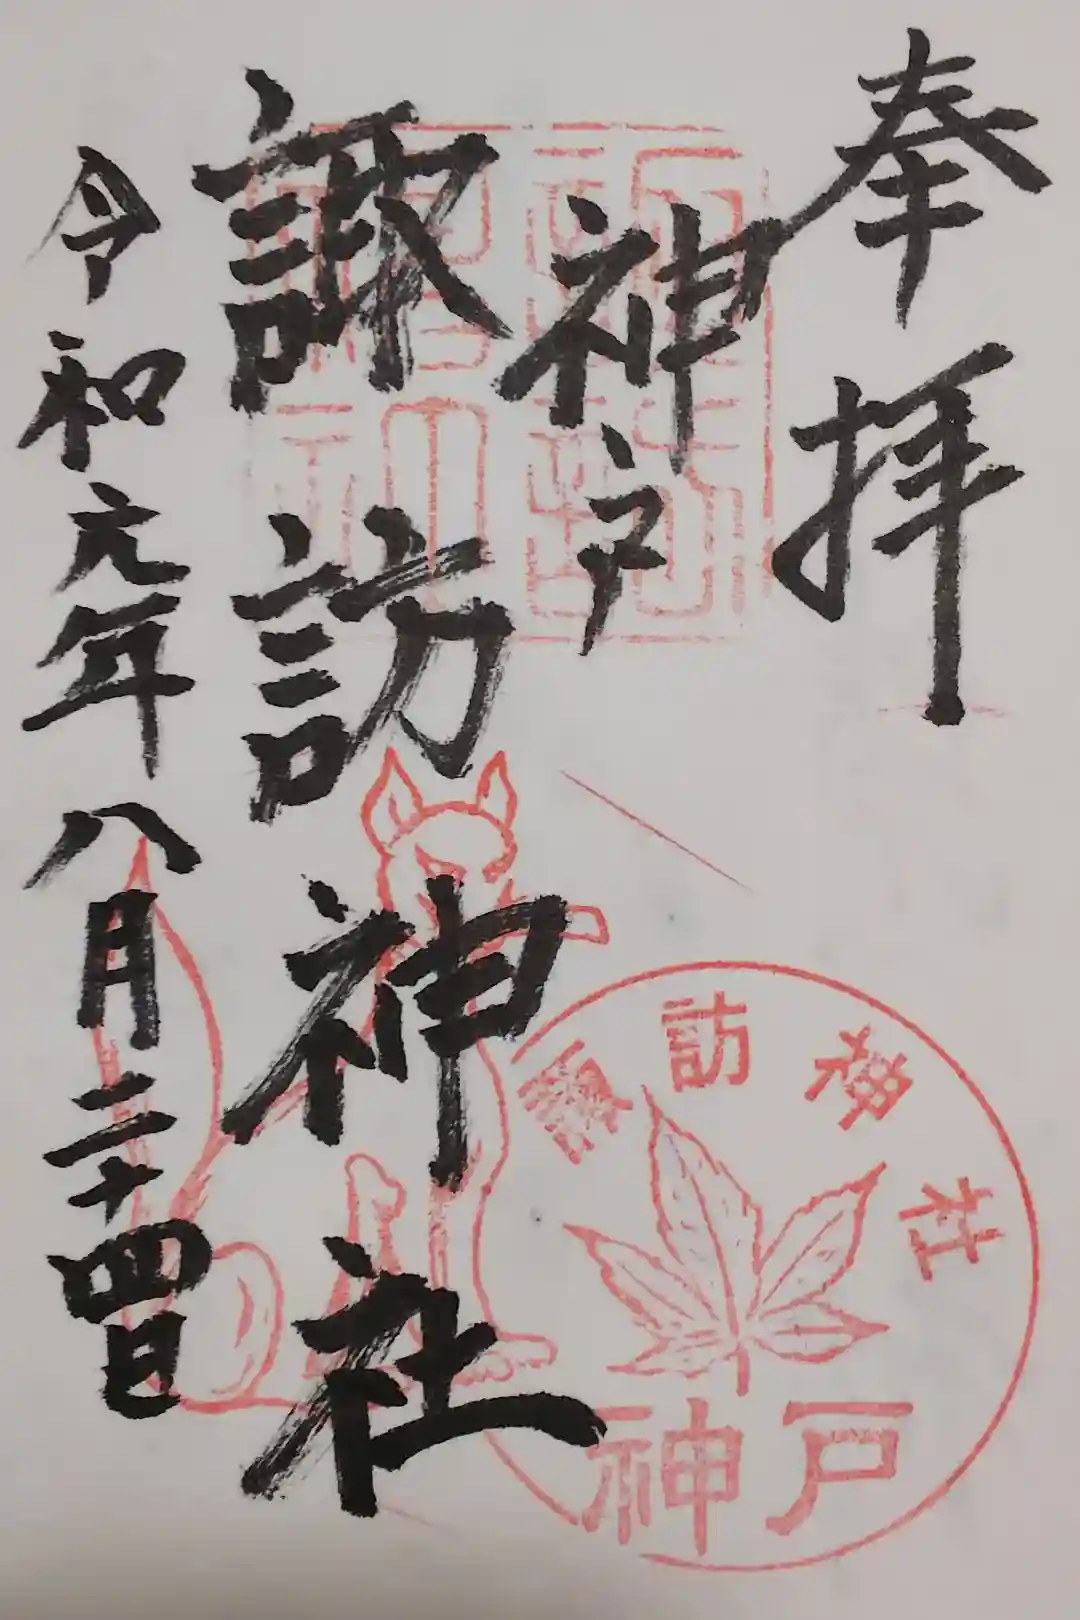 奉拝
神戸
諏訪神社
令和元年八月二十四日
諏訪神社
神戸